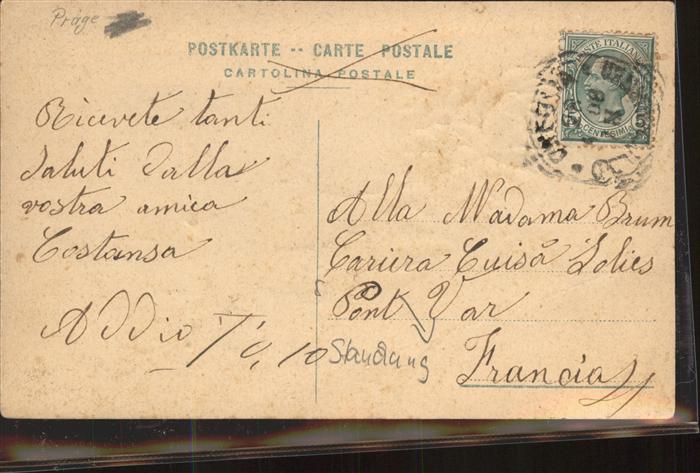 Präge
POSTKARTE -- CARTE POSTALE
CARTOLINA POSTALE
POSTE ITALIANE
CENTESIMI
Ricevete tanti
Saluti dalla
vostra amica
Costansa
Addio
Alla Madama Brum
Cariera Cuisa Solies
Pont Var
Standung
Francia